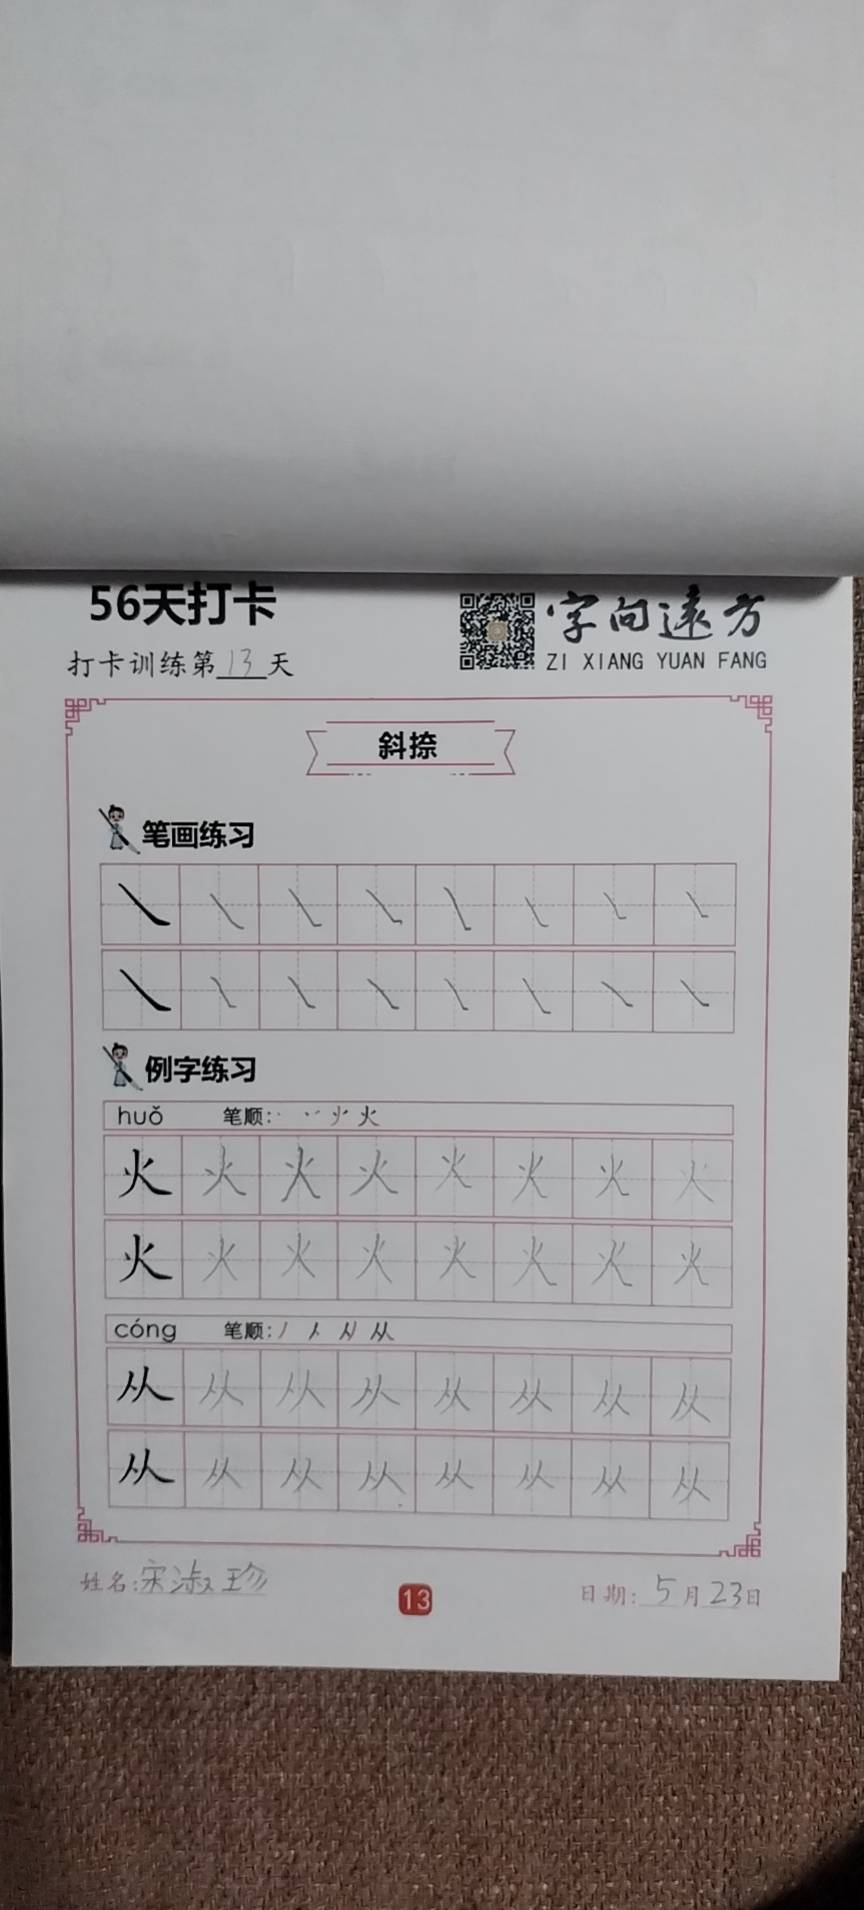 56天打卡
字向远方
打卡训练第13天
ZI XIANG YUAN FANG
斜捺
笔画练习
㇏ ㇏ ㇏ ㇏ ㇏ ㇏ ㇏ ㇏
㇏ ㇏ ㇏ ㇏ ㇏ ㇏ ㇏ ㇏
例字练习
huǒ 笔顺: 火
火 火 火 火 火 火 火 火
火 火 火 火 火 火 火 火
cóng 笔顺: 丿 人 从
从 从 从 从 从 从 从 从
从 从 从 从 从 从 从 从
姓名:宋淑珍
13
日期:5月23日